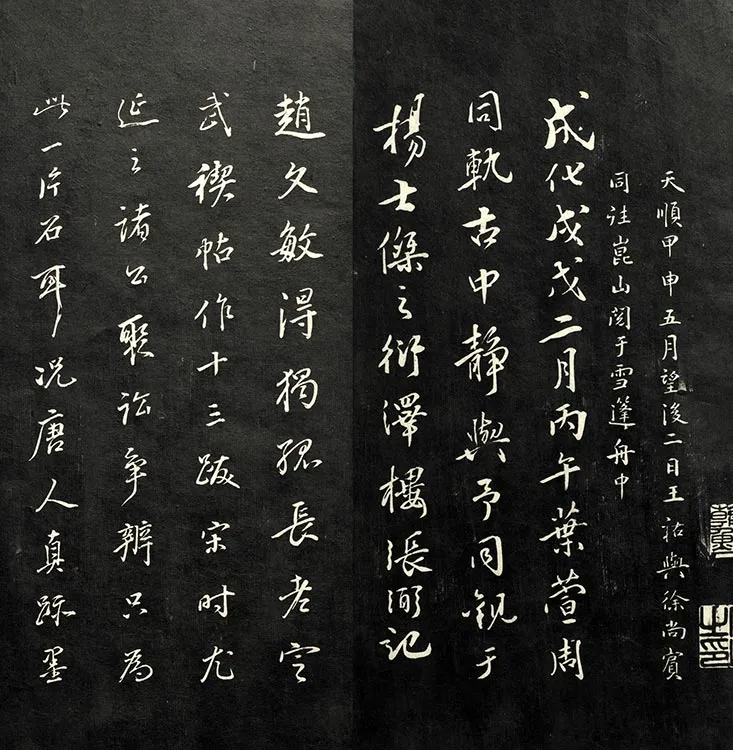 天順甲申五月望後二日王祐與徐尚賓
同往崑山閱于雪篷舟中
成化戊戌二月丙午葉萱周
同軌古中靜與予同觀于
楊士傑之衍澤樓張弼記
趙文敏得獨孤長老定
武禊帖作十三跋宋時尤
延之諸公聚訟爭辨只為
此一片石耳況唐人真跡墨